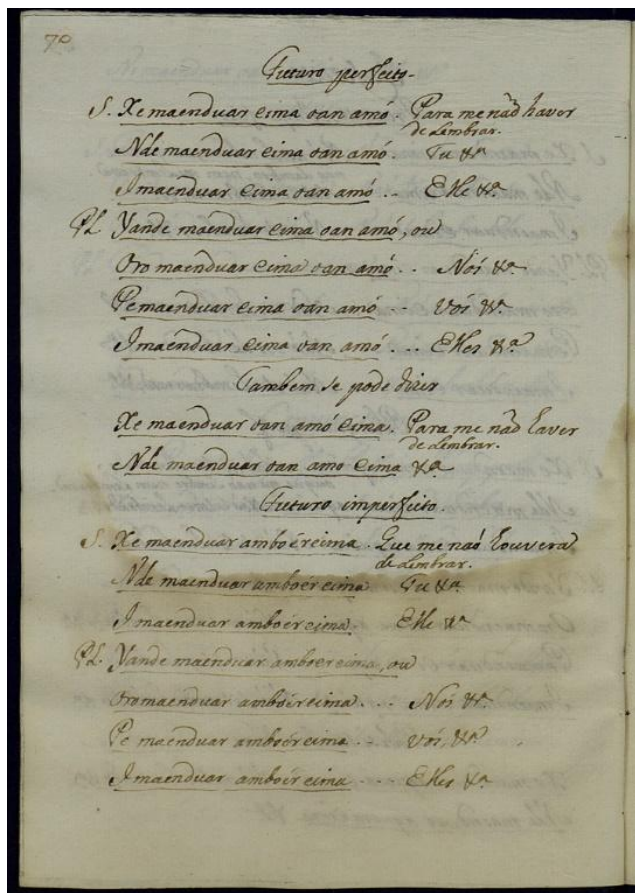 70
Futuro perfeito.
S. Xe maenduar eima oan amó. Para me naõ haver
de Lembrar.
Nde maenduar eima oan amó. Tu &ª
I maenduar eima oan amó. .. Elle &ª
Pl. Yande maenduar eima oan amó, ou
Oro maenduar eima oan amó. . Nós &ª
Pe maenduar eima oan amó -- Vós &ª
I maenduar eima oan amó. . . Elles &ª
Tambem se pode dizer
Xe maenduar oan amó eima. Para me naõ haver
de Lembrar.
Nde maenduar oan amo eima &ª
Futuro imperfeito.
S. Xe maenduar amboéreima. Que me naó houvera
de Lembrar.
Nde maenduar amboéreima Tu &ª
I maenduar amboéreima. Elle &ª
Pl. Yande maenduar amboereima, ou
Oro maenduar amboéreima. . . Nós &ª
Pe maenduar amboéreima . . Vós, &ª
I maenduar amboéreima . . . Elles &ª